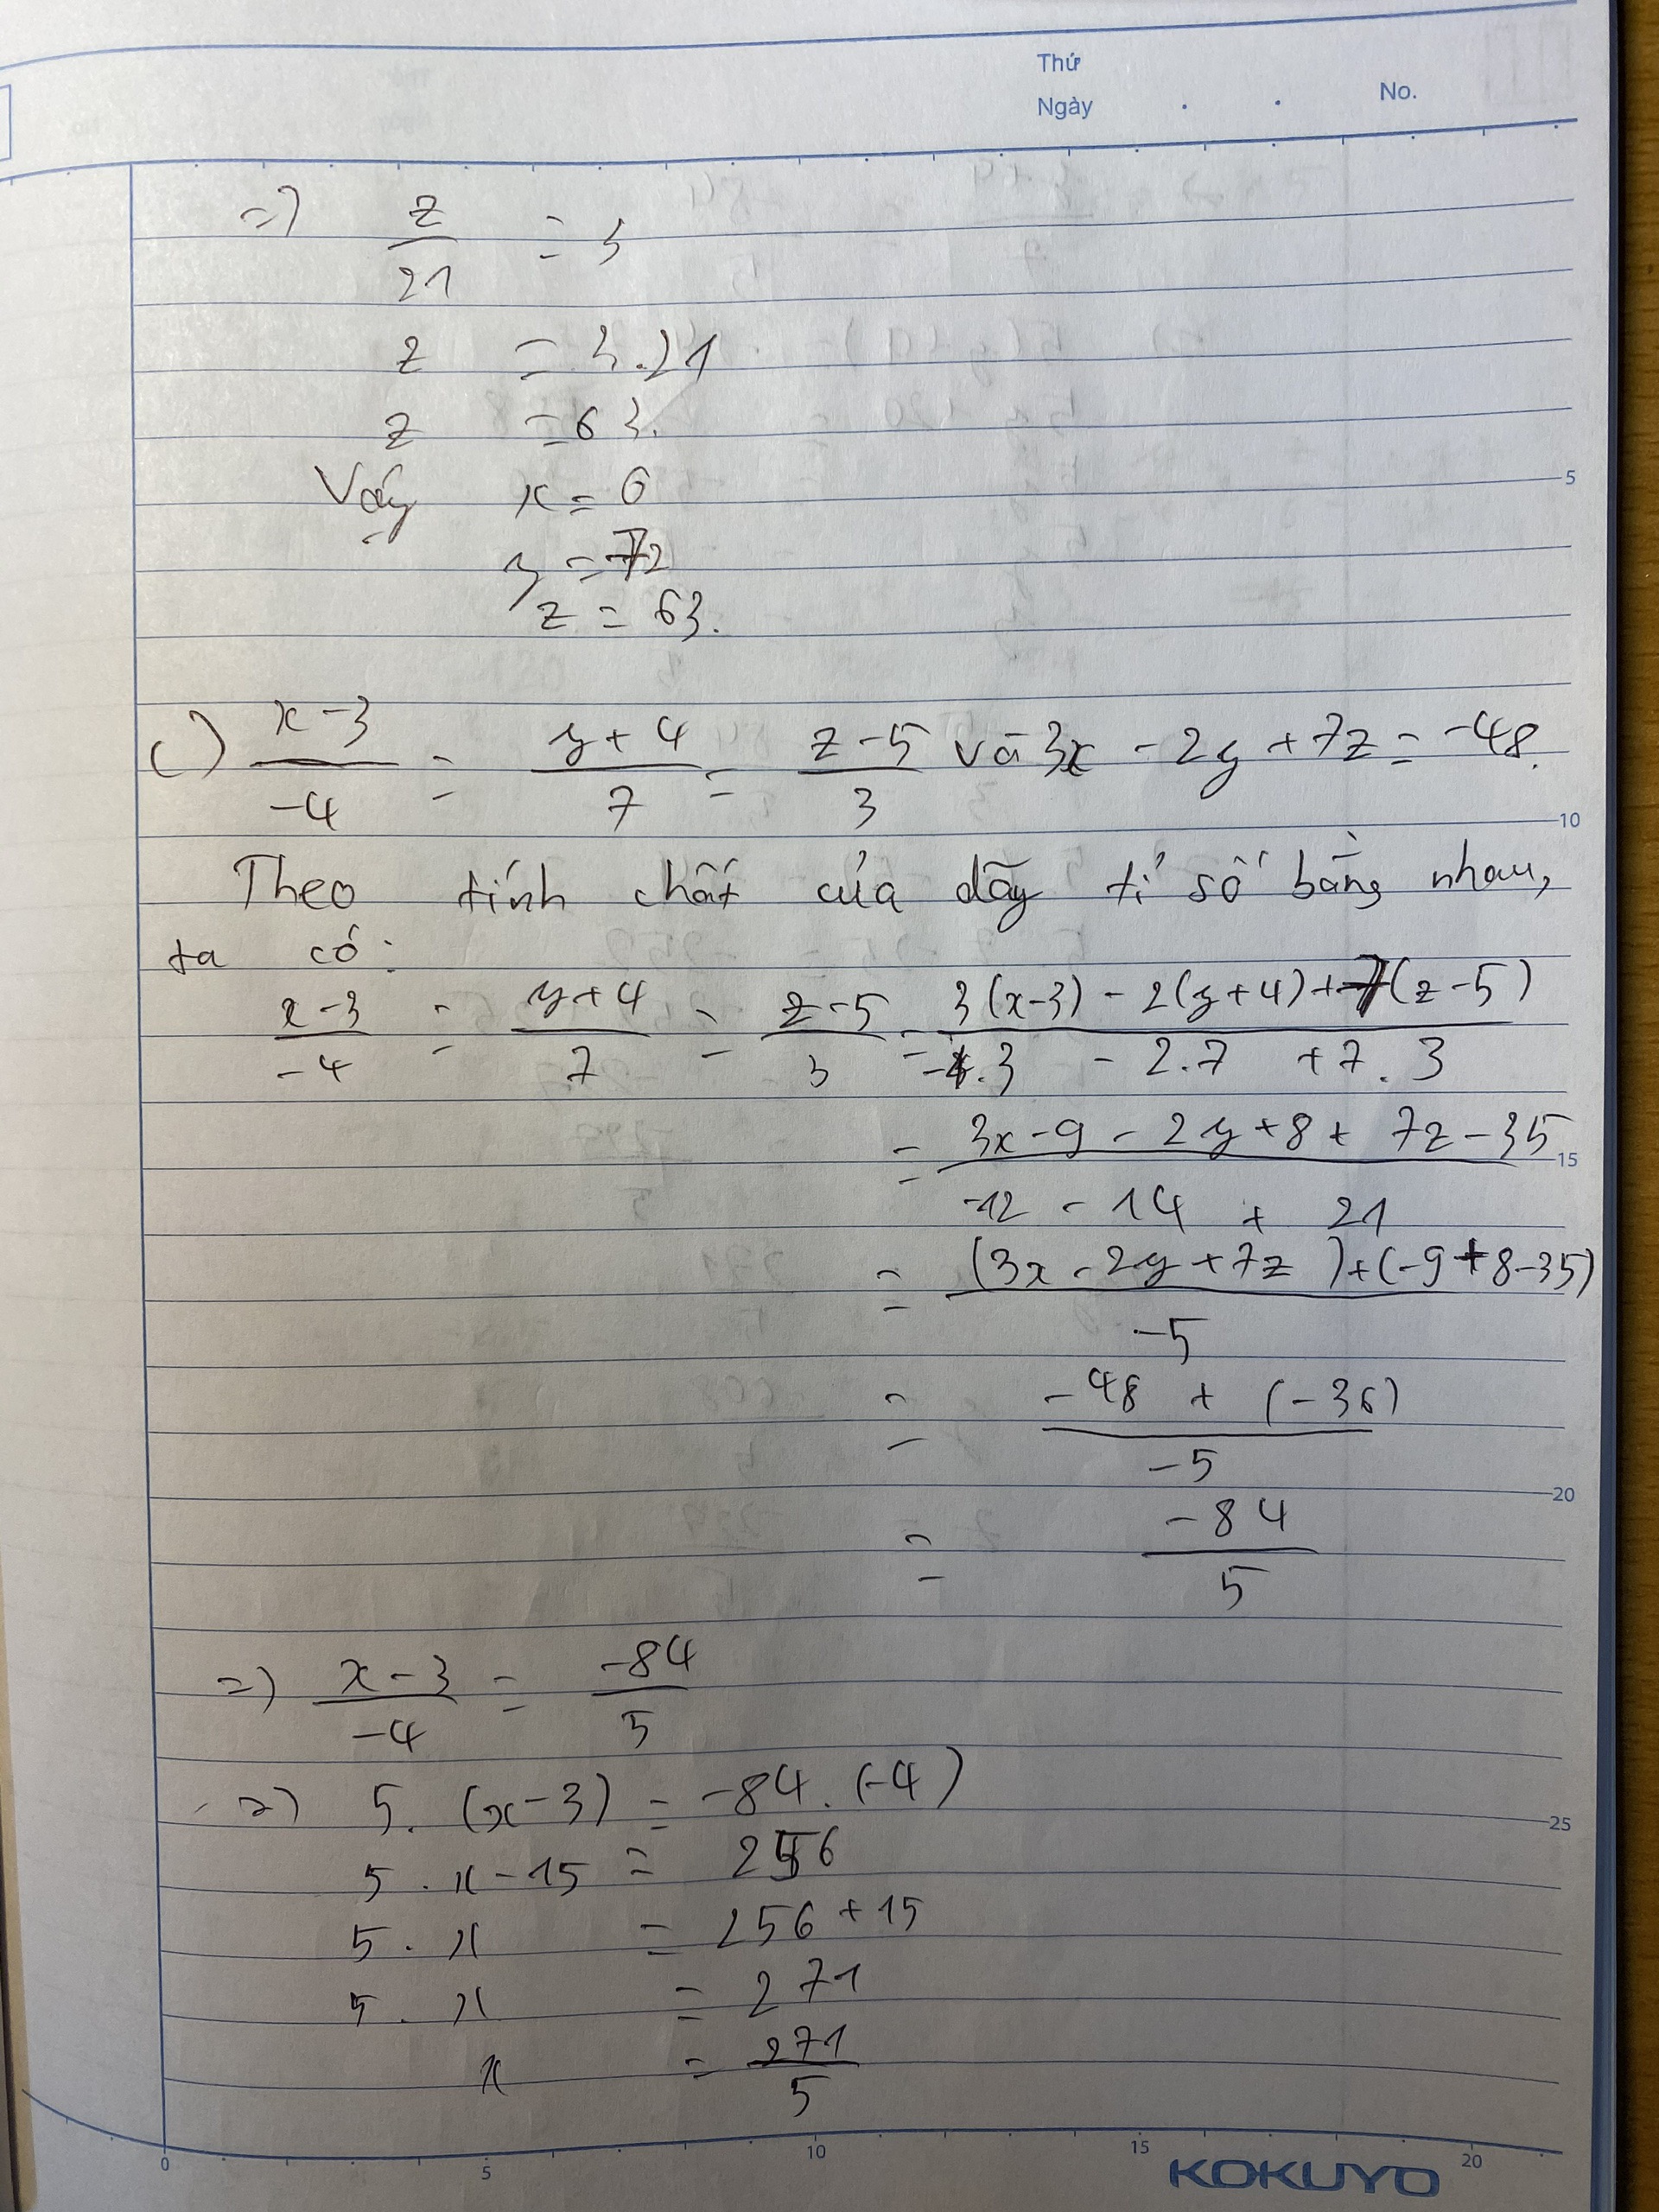 Thứ
Ngày . . No.
=) z/21 = 3
z = 3.21
z = 63.
Vậy x = 6
y = 72
z = 63.
c) (x-3)/(-4) = (y+4)/7 = (z-5)/3 và 3x - 2y + 7z = -48.
Theo tính chất của dãy tỉ số bằng nhau,
ta có:
(x-3)/(-4) = (y+4)/7 = (z-5)/3 = (3(x-3) - 2(y+4) + 7(z-5))/(-4.3 - 2.7 + 7.3)
= (3x - 9 - 2y + 8 + 7z - 35)/(-12 - 14 + 21)
= ((3x - 2y + 7z) + (-9 + 8 - 35))/(-5)
= (-48 + (-36))/(-5)
= (-84)/5
=) (x-3)/(-4) = (-84)/5
=) 5. (x-3) = -84. (-4)
5 . x - 15 = 256
5 . x = 256 + 15
5 . x = 271
x = 271/5
5
10
15
20
25
0 5 10 15 20
KOKUYO